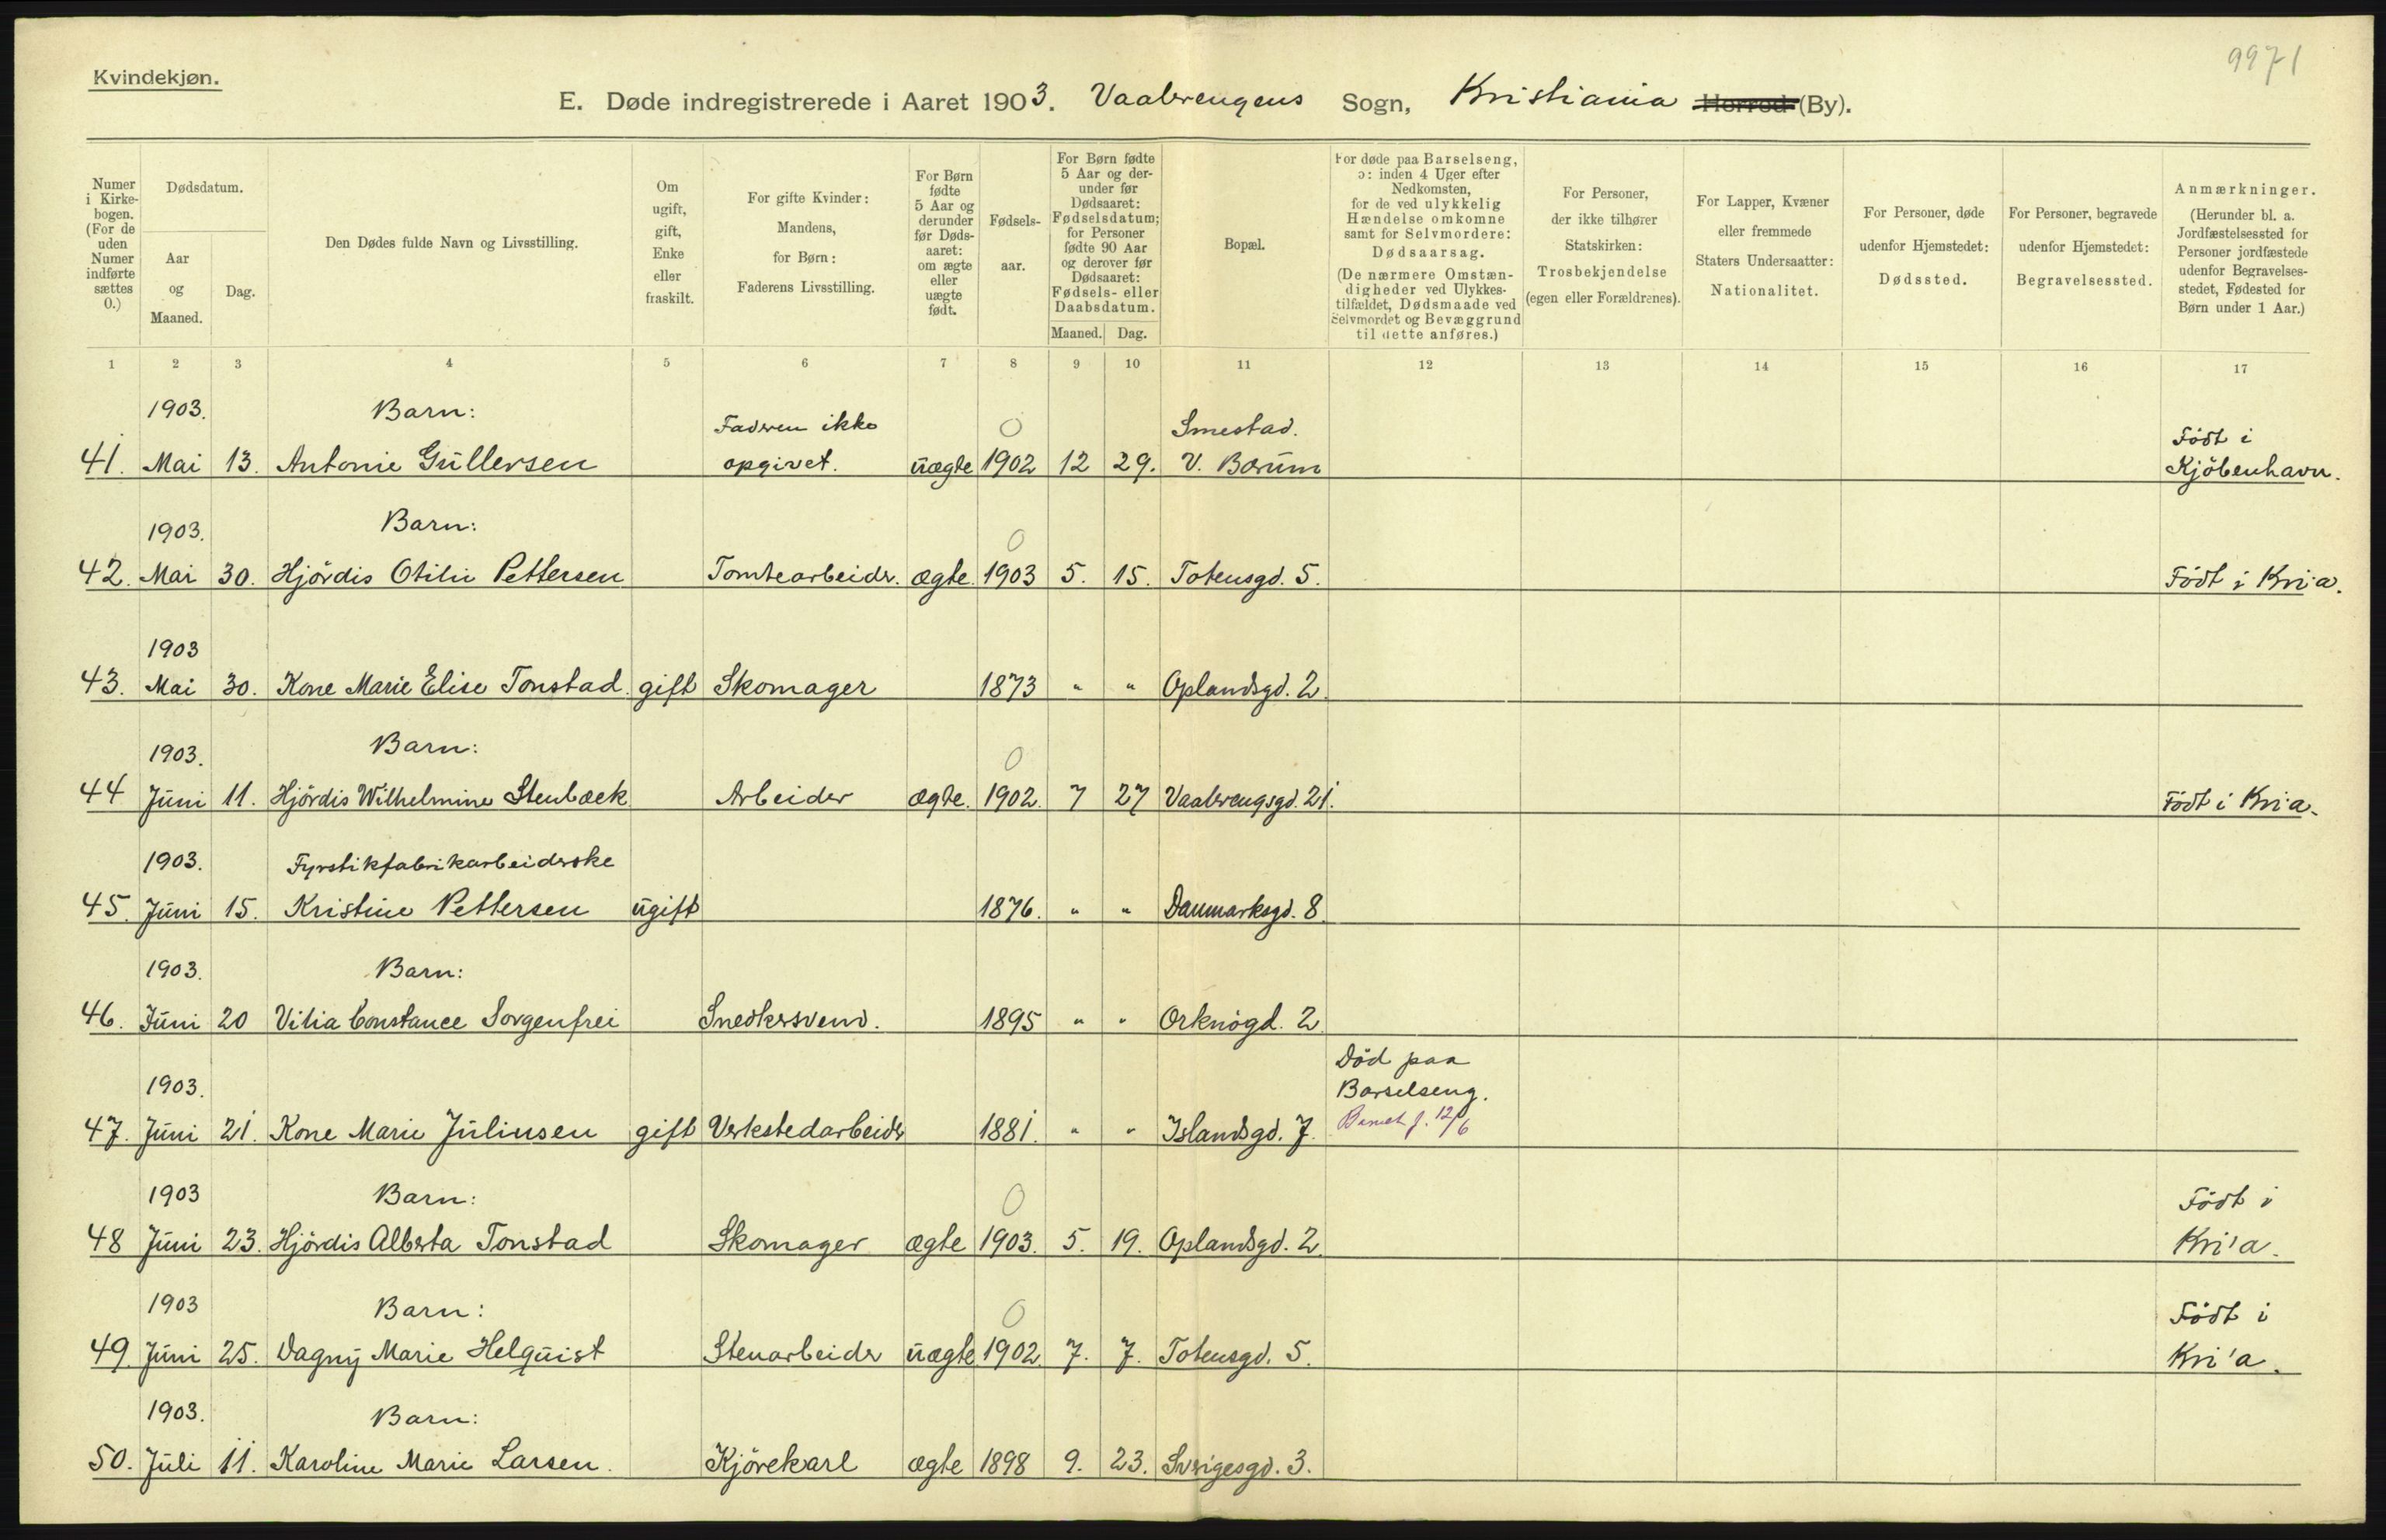 9971
Kvindekjøn.
E. Døde indregistrerede i Aaret 1903. Vaalerengens Sogn, Kristiania Herred (By).
Numer i Kirkebogen. (For de uden Numer indførte sættes 0.)
Dødsdatum.
Aar og Maaned.
Dag.
Den Dødes fulde Navn og Livsstilling.
Om ugift, gift, Enke eller fraskilt.
For gifte Kvinder: Mandens, for Børn: Faderens Livsstilling.
For Børn fødte 5 Aar og derunder før Dødsaaret: om ægte eller uægte født.
Fødselsaar.
For Børn fødte 5 Aar og derunder før Dødsaaret: Fødselsdatum; for Personer fødte 90 Aar og derover før Dødsaaret: Fødsels- eller Daabsdatum.
Maaned. Dag.
Bopæl.
For døde paa Barselseng, ɔ: inden 4 Uger efter Nedkomsten, for de ved ulykkelig Hændelse omkomne samt for Selvmordere: Dødsaarsag. (De nærmere Omstændigheder ved Ulykkestilfældet, Dødsmaade ved Selvmordet og Bevæggrund til dette anføres.)
For Personer, der ikke tilhører Statskirken: Trosbekjendelse (egen eller Forældrenes).
For Lapper, Kvæner eller fremmede Staters Undersaatter: Nationalitet.
For Personer, døde udenfor Hjemstedet: Dødssted.
For Personer, begravede udenfor Hjemstedet: Begravelsessted.
Anmærkninger. (Herunder bl. a. Jordfæstelsessted for Personer jordfæstede udenfor Begravelsesstedet, Fødested for Børn under 1 Aar.)
1 2 3 4 5 6 7 8 9 10 11 12 13 14 15 16 17
1903. Barn: Faderen ikke 0 Smestad. Födt i
41. Mai 13. Antonie Gullersen opgivet. uægte 1902 12 29. V. Bærum Kjöbenhavn.
1903. Barn: 0
42. Mai 30. Hjördis Otilie Pettersen Tomtearbeider. ægte. 1903 5. 15. Totensgd. 5. Födt i Kri'a.
1903
43. Mai 30. Kone Marie Elise Tonstad. gift Skomager 1873 " " Oplandsgd. 2.
1903. Barn: 0
44 Juni 11. Hjördis Wilhelmine Stenbæk Arbeider ægte. 1902. 7 27 Vaalerengsgd. 21. Födt i Kri'a.
1903. Fyrstikfabrikarbeiderske
45. Juni 15. Kristine Pettersen ugift 1876. " " Danmarksgd. 8.
1903. Barn:
46. Juni 20 Vilia Constance Sorgenfrei Snedkersvend. 1895 " " Orknögd. 2.
1903. Död paa
Barselseng.
47. Juni 21. Kone Marie Juliusen gift Verkstedarbeider 1881. " " Islandsgd. 7. Barnet f. 12/6
1903 Barn: 0 Födt i
48 Juni 23. Hjördis Alberta Tonstad Skomager ægte 1903. 5. 19. Oplandsgd. 2. Kri'a.
1903 Barn: 0 Födt i
49. Juni 25. Dagny Marie Helquist Stenarbeider uægte 1902. 7. 7. Totensgd. 5. Kri'a.
1903. Barn:
50. Juli 11. Karoline Marie Larsen. Kjörekarl ægte 1898 9. 23. Sverigesgd. 3.